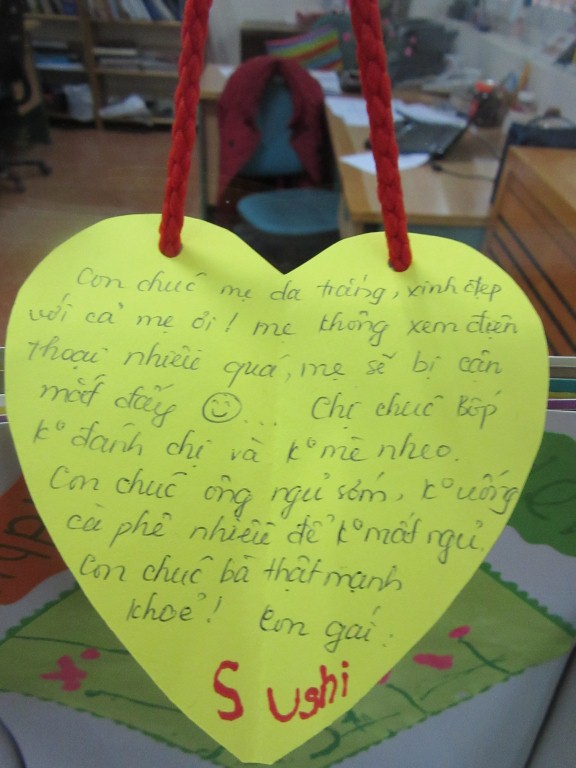 Con chúc mẹ da trắng, xinh đẹp
với cả mẹ ơi! mẹ không xem điện
thoại nhiều quá, mẹ sẽ bị cận
mắt đấy ☺... Chị chúc Bốp
k° đánh chị và k° mè nheo.
Con chúc ông ngủ sớm, k° uống
cà phê nhiều để k° mất ngủ.
Con chúc bà thật mạnh
khoẻ! Con gái:
Sushi